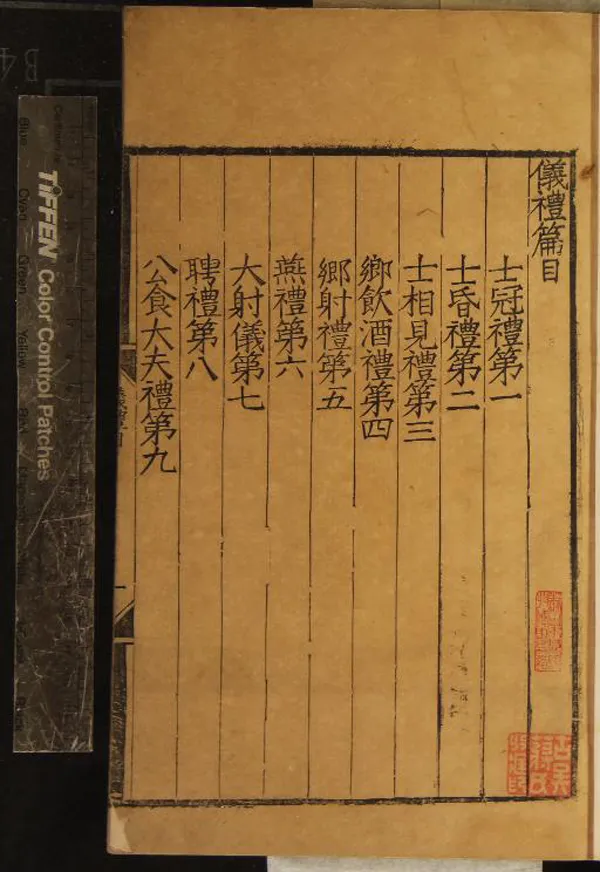 儀禮篇目
士冠禮第一
士昏禮第二
士相見禮第三
鄉飲酒禮第四
鄉射禮第五
燕禮第六
大射儀第七
聘禮第八
公食大夫禮第九
TIFFEN Color Control Patches
Blue
Cyan
Green
Yellow
B4